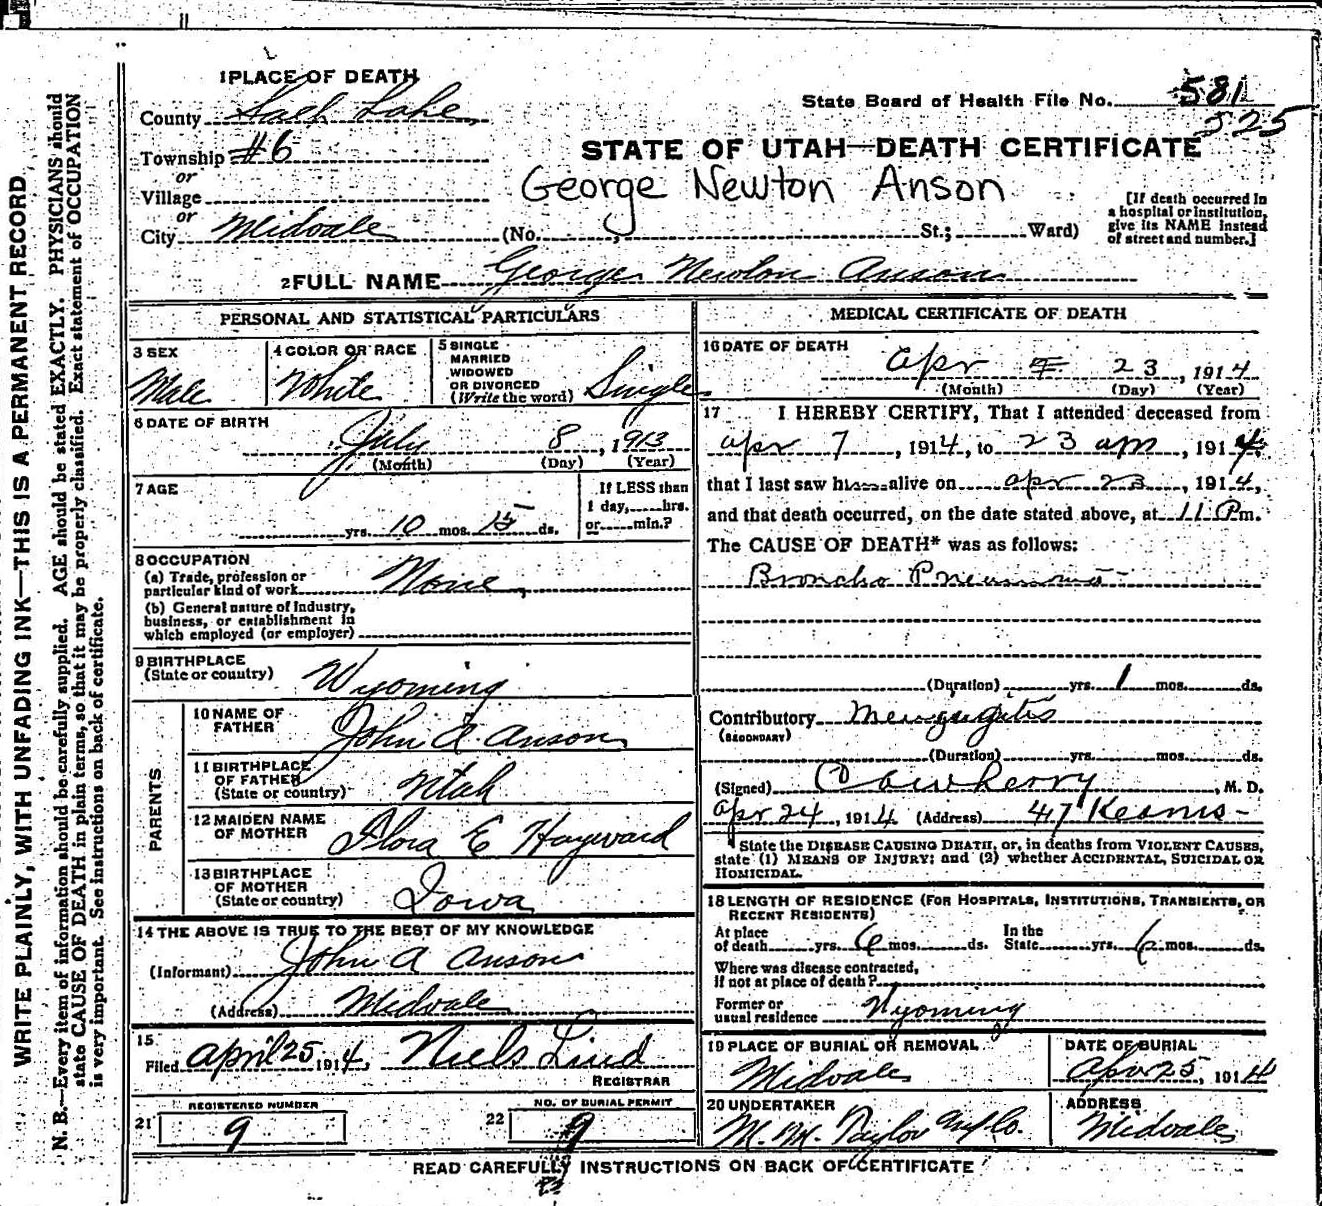 1 PLACE OF DEATH
County Salt Lake
State Board of Health File No. 581
525
Township #6
or
Village
or
City Midvale (No. , St.; Ward)
STATE OF UTAH—DEATH CERTIFICATE
George Newton Anson
[If death occurred in a hospital or institution, give its NAME instead of street and number.]
2 FULL NAME George Newton Anson
PERSONAL AND STATISTICAL PARTICULARS
3 SEX
Male
4 COLOR OR RACE
White
5 SINGLE
MARRIED
WIDOWED
OR DIVORCED
(Write the word) Single
6 DATE OF BIRTH
July 8, 1913
(Month) (Day) (Year)
7 AGE
yrs. 10 mos. 15 ds.
If LESS than
1 day, hrs.
or min.?
8 OCCUPATION
(a) Trade, profession or
particular kind of work None
(b) General nature of industry,
business, or establishment in
which employed (or employer)
9 BIRTHPLACE
(State or country) Wyoming
PARENTS
10 NAME OF
FATHER John A. Anson
11 BIRTHPLACE
OF FATHER
(State or country) Utah
12 MAIDEN NAME
OF MOTHER Flora E Hayward
13 BIRTHPLACE
OF MOTHER
(State or country) Iowa
14 THE ABOVE IS TRUE TO THE BEST OF MY KNOWLEDGE
(Informant) John A Anson
(Address) Midvale
15
Filed April 25 1914, Niels Lind
REGISTRAR
21 REGISTERED NUMBER
9
22 NO. OF BURIAL PERMIT
9
MEDICAL CERTIFICATE OF DEATH
16 DATE OF DEATH
Apr 23, 1914
(Month) (Day) (Year)
17 I HEREBY CERTIFY, That I attended deceased from
Apr 7, 1914, to 23 Apr, 1914
that I last saw h alive on Apr 23, 1914,
and that death occurred, on the date stated above, at 11 Pm.
The CAUSE OF DEATH* was as follows:
Broncho Pneumonia
(Duration) yrs. 1 mos. ds.
Contributory Meningitis
(SECONDARY)
(Duration) yrs. mos. ds.
(Signed) , M. D.
Apr 24, 1914 (Address) 47 Kearns
* State the DISEASE CAUSING DEATH, or, in deaths from VIOLENT CAUSES,
state (1) MEANS OF INJURY; and (2) whether ACCIDENTAL, SUICIDAL OR
HOMICIDAL.
18 LENGTH OF RESIDENCE (FOR HOSPITALS, INSTITUTIONS, TRANSIENTS, OR
RECENT RESIDENTS)
At place
of death yrs. 6 mos. ds.
In the
State yrs. 6 mos. ds.
Where was disease contracted,
if not at place of death?
Former or
usual residence Wyoming
19 PLACE OF BURIAL OR REMOVAL
Midvale
DATE OF BURIAL
Apr 25, 1914
20 UNDERTAKER
M. M. Taylor Co.
ADDRESS
Midvale
READ CAREFULLY INSTRUCTIONS ON BACK OF CERTIFICATE
WRITE PLAINLY, WITH UNFADING INK—THIS IS A PERMANENT RECORD
N. B.—Every item of information should be carefully supplied. AGE should be stated EXACTLY. PHYSICIANS should
state CAUSE OF DEATH in plain terms, so that it may be properly classified. Exact statement of OCCUPATION
is very important. See instructions on back of certificate.